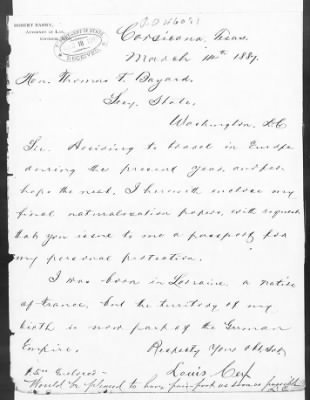 ROBERT SABBY,
Attorney at Law,
Corsicana, Texas.
March 14th 1887.
Hon. Thomas F. Bayard.
Secy. State,
Washington, D.C
Sir. Desiring to travel in Europe
during the present year, and perhaps
the next. I herewith enclose my
final naturalization papers, with request
that you issue to me a passport for
my personal protection.
I was born in Lorraine, a native
of France, but the territory of my
birth is now part of the German
Empire. Respecty Yours obt Svt
Louis Cerf
Enclosed-
Would be pleased to have passport as soon as possible